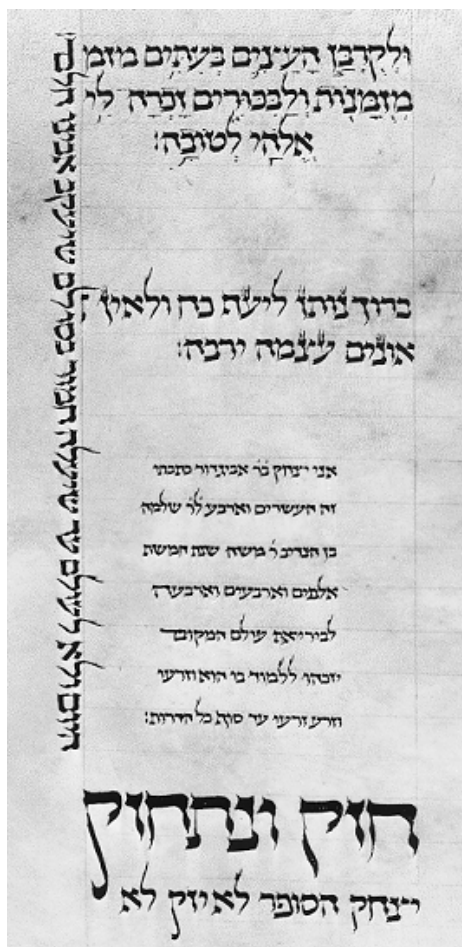 וּלְקֻרְבַּן הָעֵצִים בְּעִתִּים מזמ
מְזֻמָּנוֹת וְלַבִּכּוּרִים זָכְרָה לִי
אֱלֹהַי לְטוֹבָה:
ברוך נותן ליעף כח ולאין
אונים עצמה ירבה:
אני יצחק בר אביגדור כתבתי
זה העשרים וארבע לר שלמה
בן הנדיב ר משה שנת חמשת
אלפים וארבעים וארבעה
לביריאת עולם המקום
יזכהו ללמוד בו הוא וזרעו
וזרע זרעו עד סוף כל הדורות:
חזק ונתחזק
יצחק הסופר לא יזק לא
היום ולא לעולם עד שיעלה חמור בסולם שיעקב אבינו